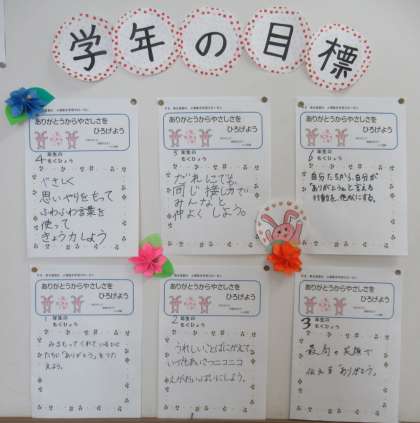 学年の目標
ありがとうからやさしさを
ひろげよう
4 年生の
もくひょう
やさしく
思いやりをもって
ふわふわ言葉を
使って
きょう力しよう
ありがとうからやさしさを
ひろげよう
5 年生の
もくひょう
だれにでも
同じ接し方で
みんなと
仲よくしよう。
ありがとうからやさしさを
ひろげよう
6 年生の
もくひょう
自分たちから、自分が
「ありがとう。」と言える
行動を
ありがとうからやさしさを
ひろげよう
年生の
もくひょう
みまもってくれているひと
たちに「ありがとう」をつた
えよう。
ありがとうからやさしさを
ひろげよう
2 年生の
もくひょう
うれしいことばにかえて、
いつもあいさつニコニコ
えがおいっぱいにしよう。
ありがとうからやさしさを
ひろげよう
3 年生の
もくひょう
最高の笑顔で
伝える「ありがとう」